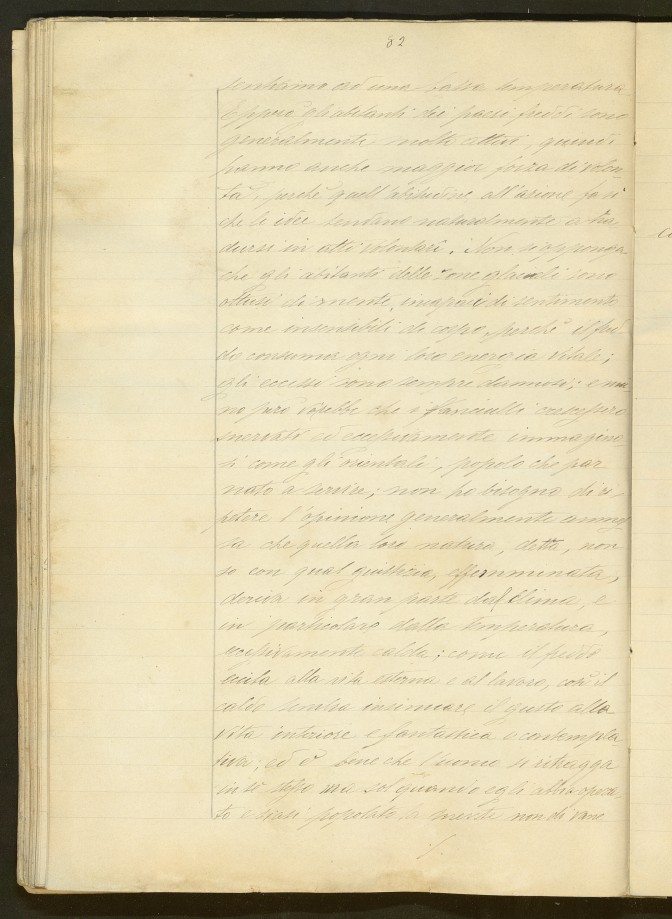 82
sentiamo ad una bassa temperatura
Eppure gli abitanti dei paesi freddi sono
generalmente molto attivi, quindi
hanno anche maggior forza di volon-
tà, perché quell'abitudine all'azione fa sì
che le idee tendano naturalmente a tra
dursi in atti volontari. Non si opponga
che gli abitanti delle zone glaciali sono
ottusi di mente, incapaci di sentimento
come insensibili di corpo, perché il fred
do consuma ogni loro energia vitale;
gli eccessi sono sempre dannosi; e nes-
no però vorrebbe che i fanciulli crescessero
snervati ed eccessivamente immagino
si come gli orientali, popolo che par
nato a servire; non ho bisogno di ri-
petere l'opinione generalmente ammes
sa che quella loro natura, detta, non
so con qual giustizia, effemminata,
deriva in gran parte dal clima, e
in particolare dalla temperatura,
eccessivamente calda; come il freddo
eccita alla vita esterna e al lavoro, così il
caldo sembra insinuare il gusto alla
vita interiore e fantastica e contempla
tiva; ed è bene che l'uomo si ritragga
in sè stesso ma sol quando egli abbia
to e siasi popolato la mente non di vane